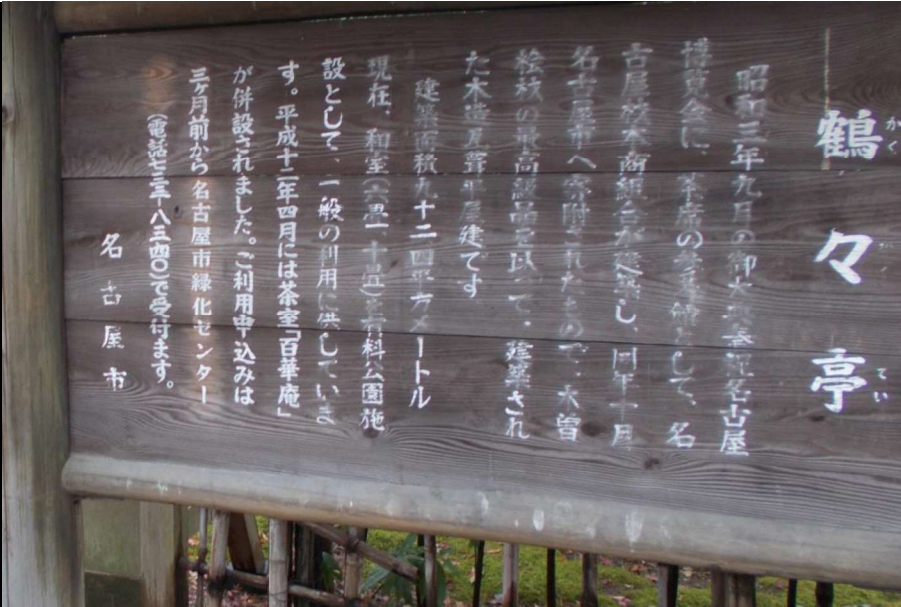 鶴々亭
かくかくてい
昭和三年九月の御大典奉祝名古屋
博覧会に、茶席の参考館として、名
古屋材木商組合が建築し、同年十一月
名古屋市へ寄附されたもので、木曽
桧材の最高級品を以って、建築され
た木造瓦葺平屋建てです
建築面積九十二・四平方メートル
現在、和室(六畳・十畳)を有料公園施
設として、一般の利用に供していま
す。平成十二年四月には茶室「百華庵」
が併設されました。ご利用申込みは
三ヶ月前から名古屋市緑化センター
八三四〇)で受付ます。
名古屋市